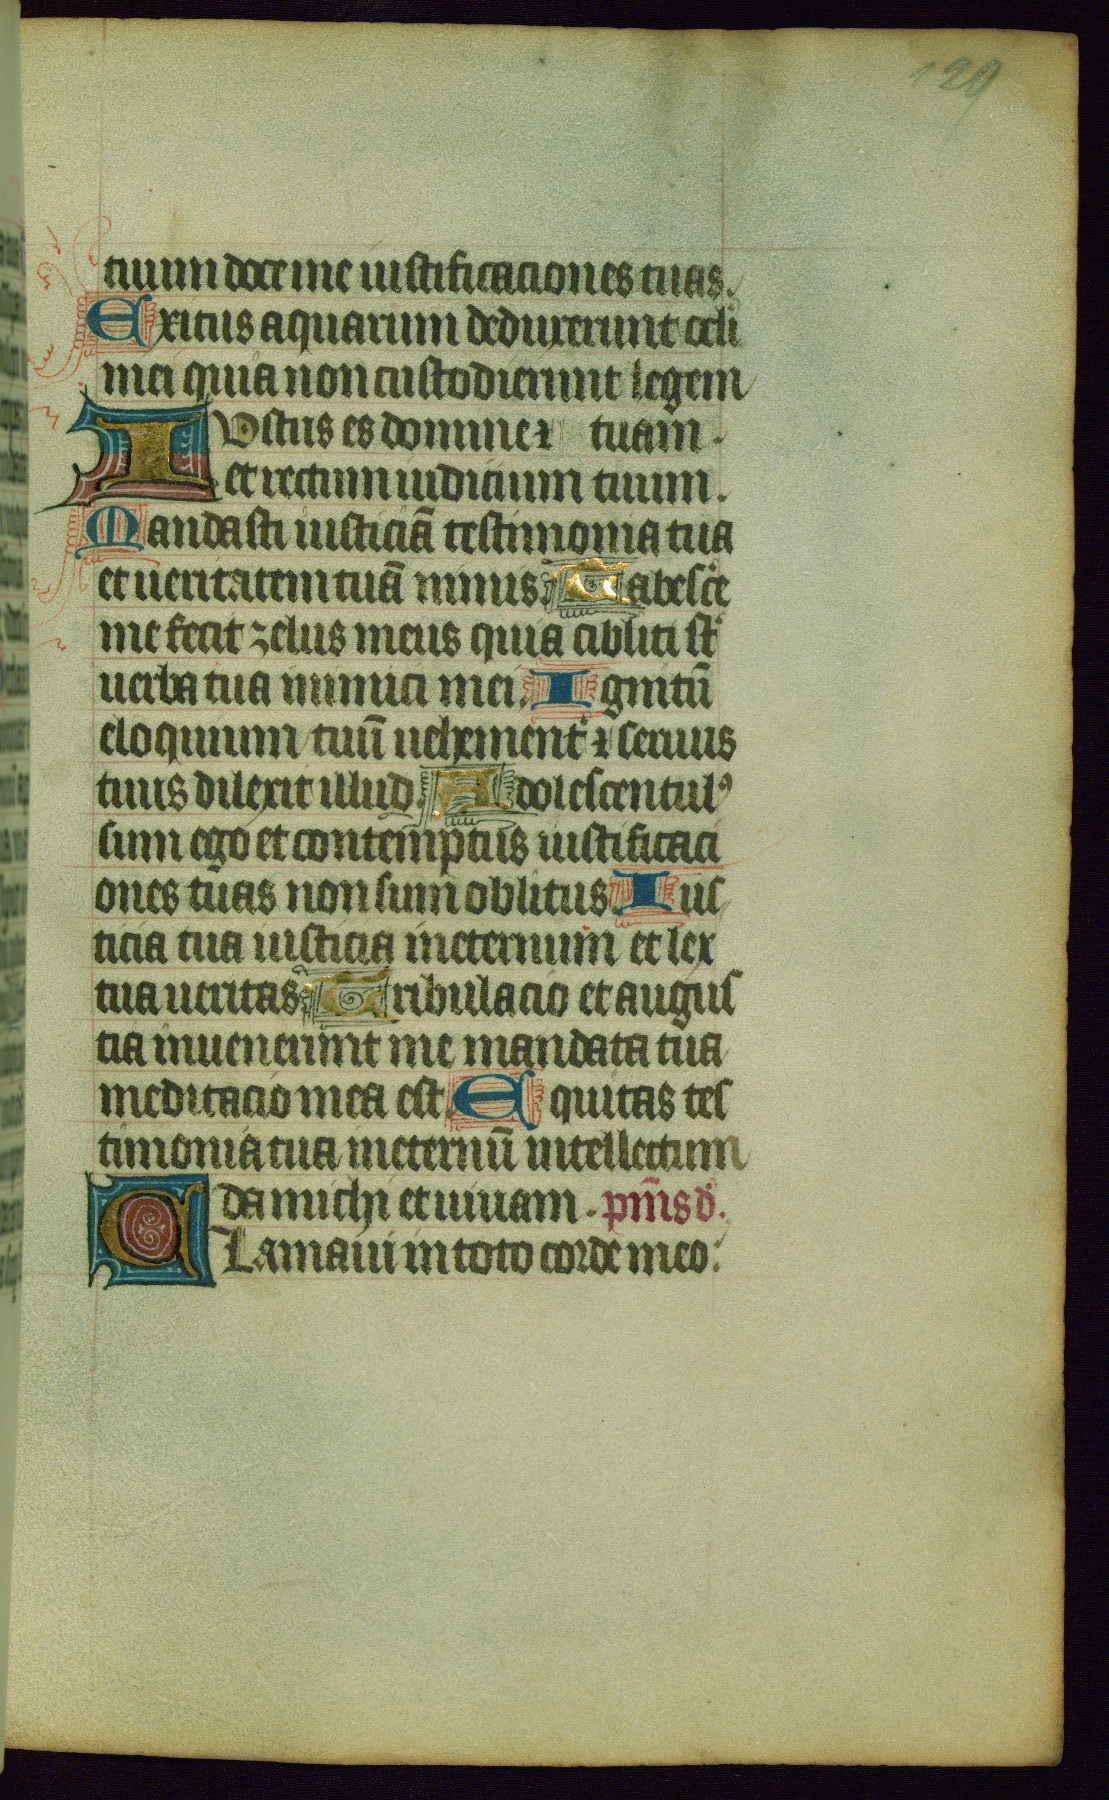 129
tuum doce me iustificaciones tuas.
Exitus aquarum deduxerunt oculi
mei quia non custodierunt legem
Iustus es domine ⁊ tuam.
et rectum iudicium tuum.
Mandasti iusticiā testimonia tua
et ueritatem tuā nimis. Tabesce
me fecit zelus meus quia obliti st̄
uerba tua inimici mei. Ignitū
eloquium tuū uehement᷑ ⁊ seruus
tuus dilexit illud. Adolescentulꝰ
sum ego et contemptus iustificaci
ones tuas non sum oblitus. Ius
ticia tua iusticia ineternum et lex
tua ueritas. Tribulacio et angus
tia inuenerunt me mandata tua
meditacio mea est. Equitas tes
timonia tua ineternū intellectum
da michi et uiuam. pm̄s d̄.
Clamaui in toto corde meo: